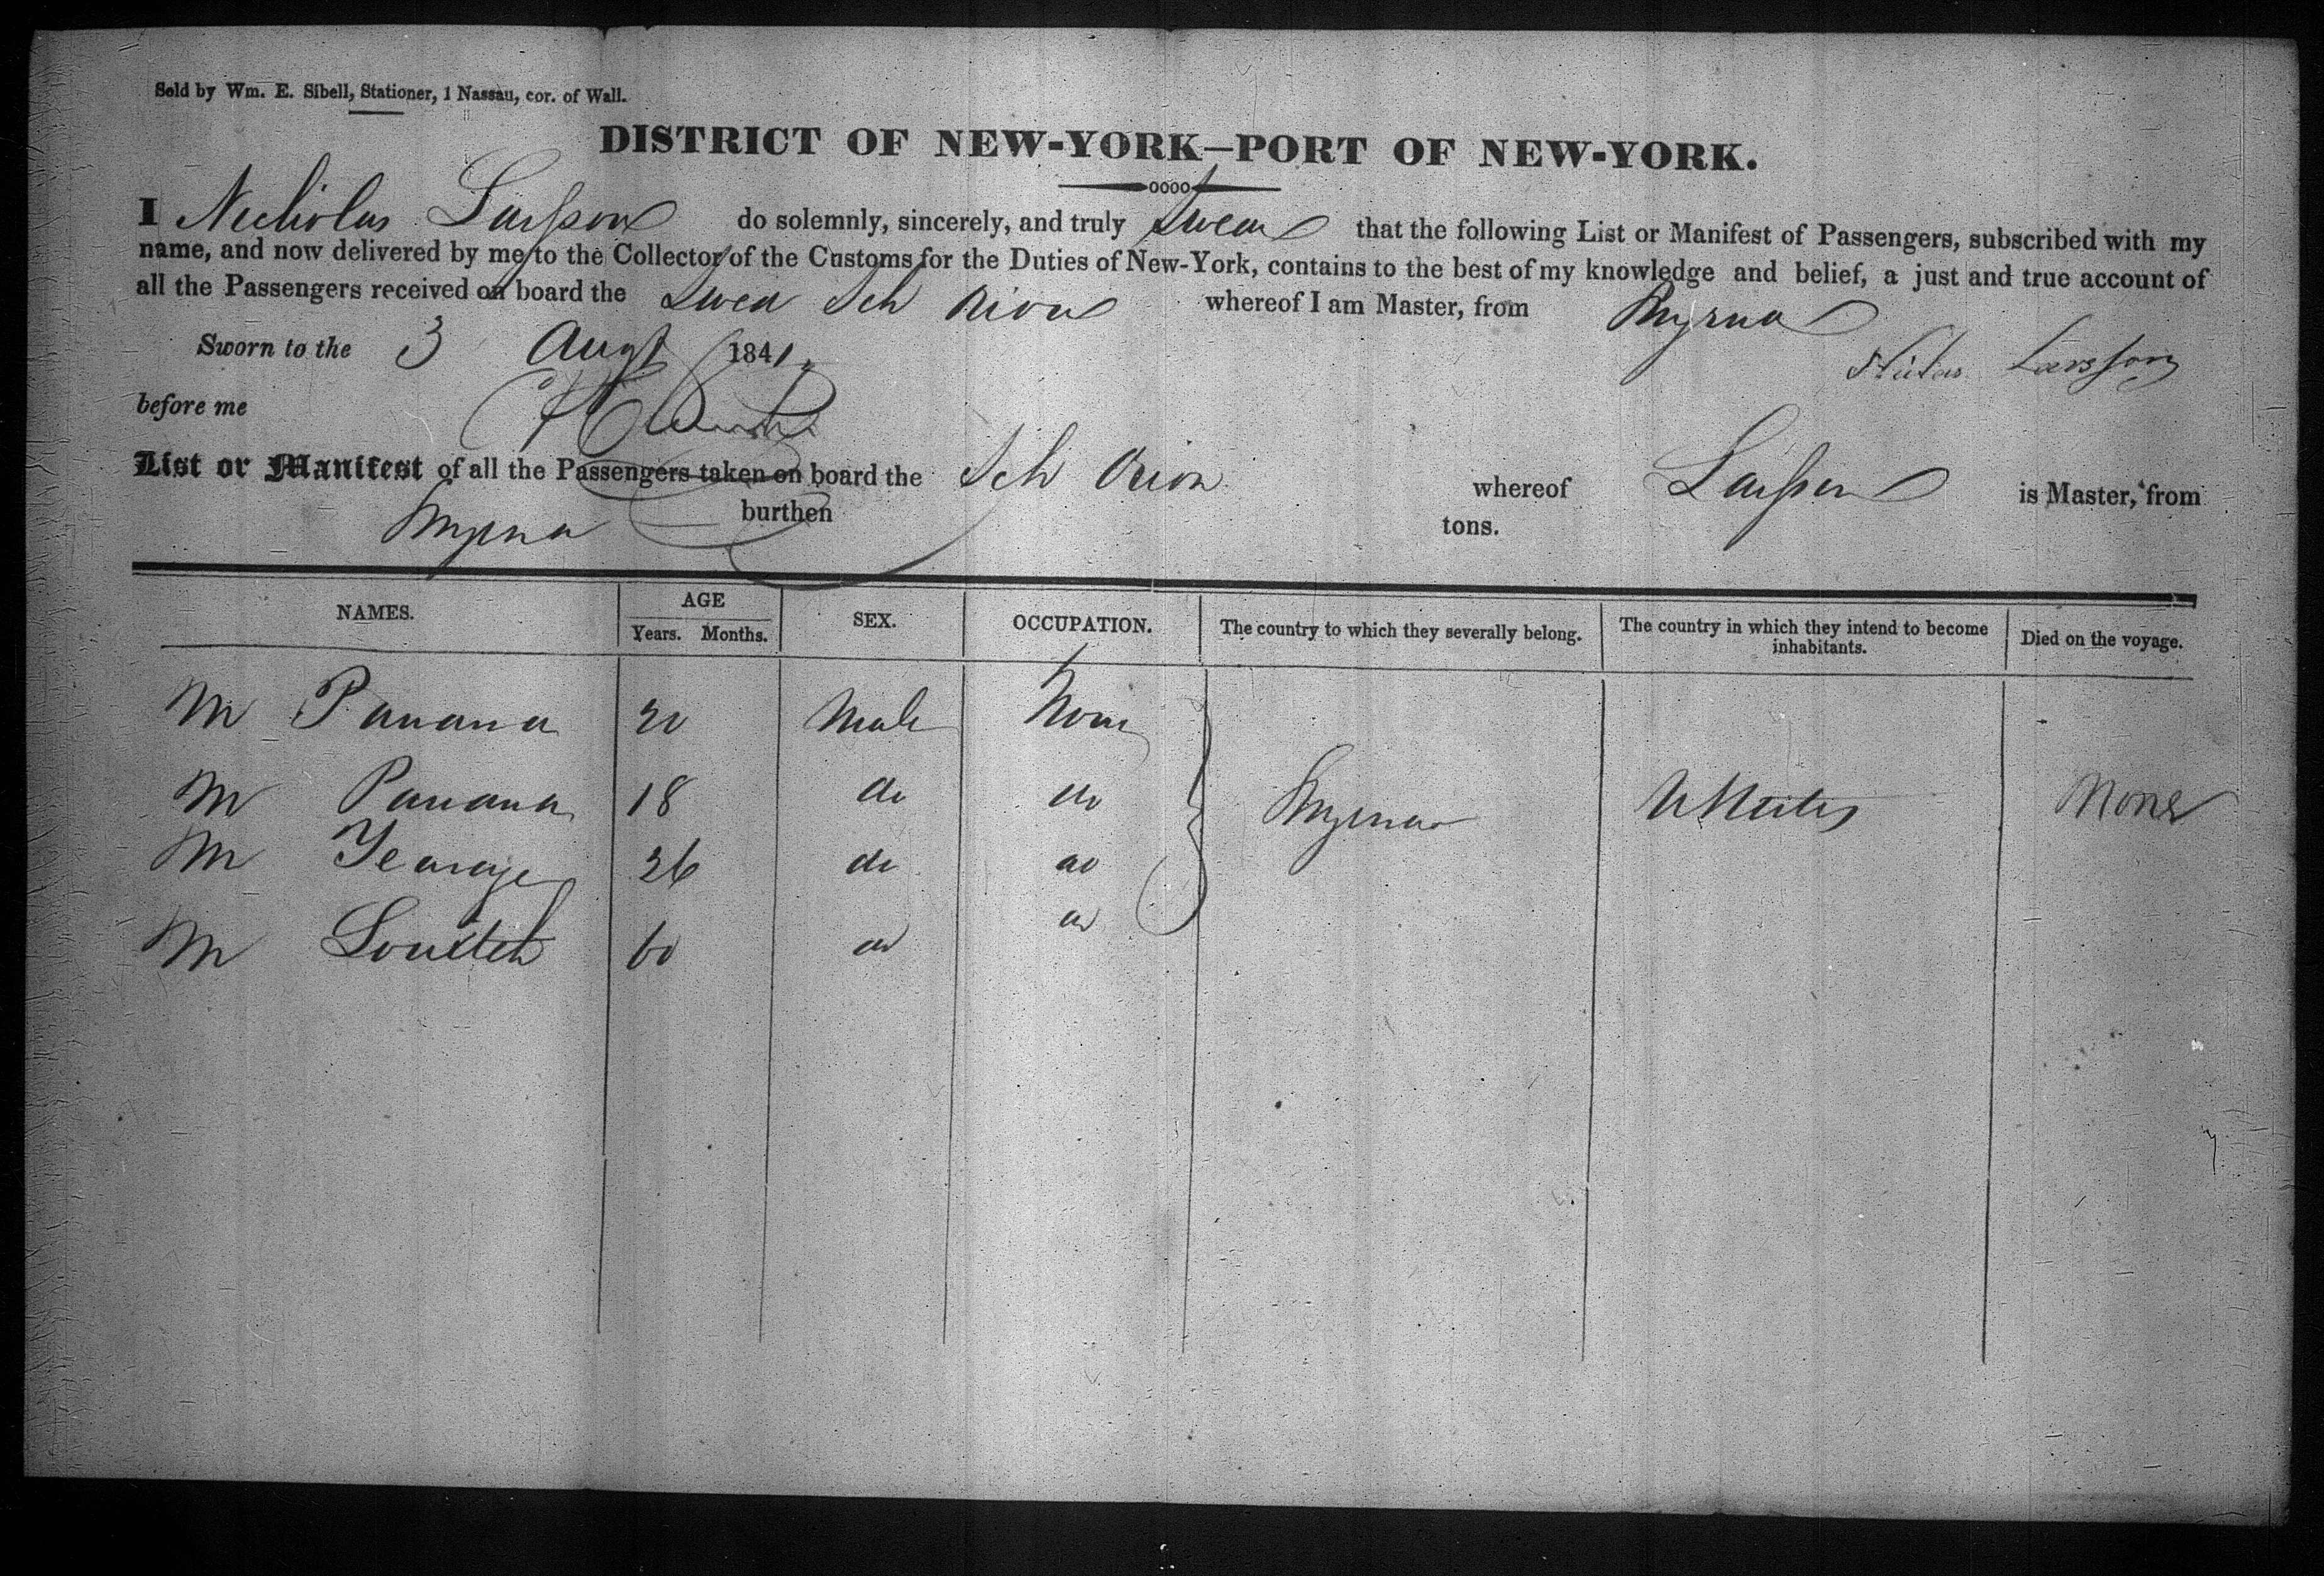 Sold by Wm. E. Sibell, Stationer, 1 Nassau, cor. of Wall.
DISTRICT OF NEW-YORK—PORT OF NEW-YORK.
I Nicholas Larsson do solemnly, sincerely, and truly Swear that the following List or Manifest of Passengers, subscribed with my
name, and now delivered by me to the Collector of the Customs for the Duties of New-York, contains to the best of my knowledge and belief, a just and true account of
all the Passengers received on board the Swed Sch Orion whereof I am Master, from Smyrna
Sworn to the 3 Augt 1841. Larsson
before me
List or Manifest of all the Passengers taken on board the Sch Orion whereof Larsson is Master, from
Smyrna burthen tons.
NAMES. AGE Years. Months. SEX. OCCUPATION. The country to which they severally belong. The country in which they intend to become inhabitants. Died on the voyage.
M Panana 20 Male None
M Panana 18 do do Smyrna U States None
M 26 do do
M 60 do do